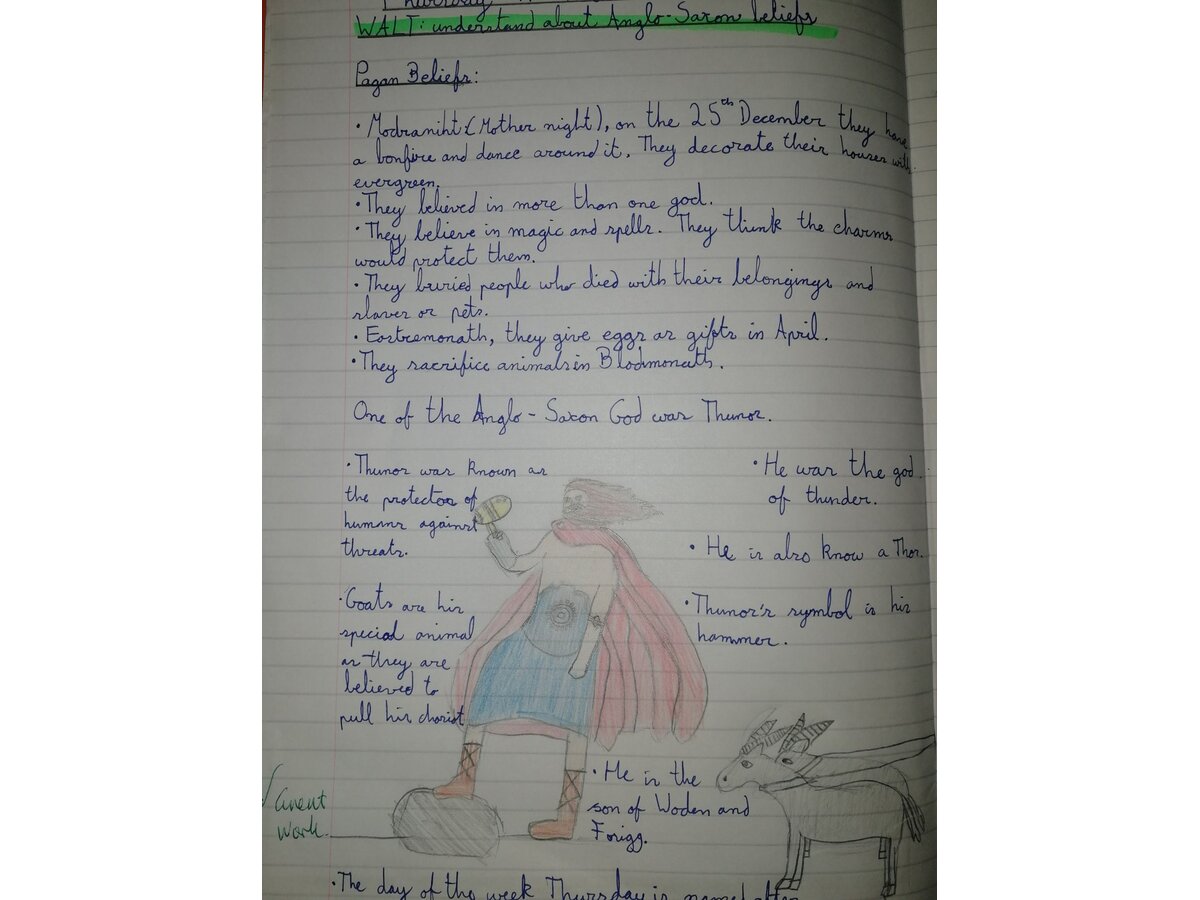 Thursday
WALT: understand about Anglo-Saxon beliefs
Pagan Beliefs:
• Modraniht (Mother night), on the 25th December they have
a bonfire and dance around it. They decorate their houses with
evergreen.
• They believed in more than one god.
• They believe in magic and spells. They think the charms
would protect them.
• They buried people who died with their belongings and
slaves or pets.
• Eostremonath, they give eggs as gifts in April.
• They sacrifice animals in Blodmonath.
One of the Anglo-Saxon God was Thunor.
• Thunor was known as
the protector of
humans against
threats.
• He was the god
of thunder.
• He is also know a Thor.
• Goats are his
special animal
as they are
believed to
pull his choriot
• Thunor's symbol is his
hammer.
• He is the
son of Woden and
Forigg.
√ Great
work.
• The day of the week Thursday is named after